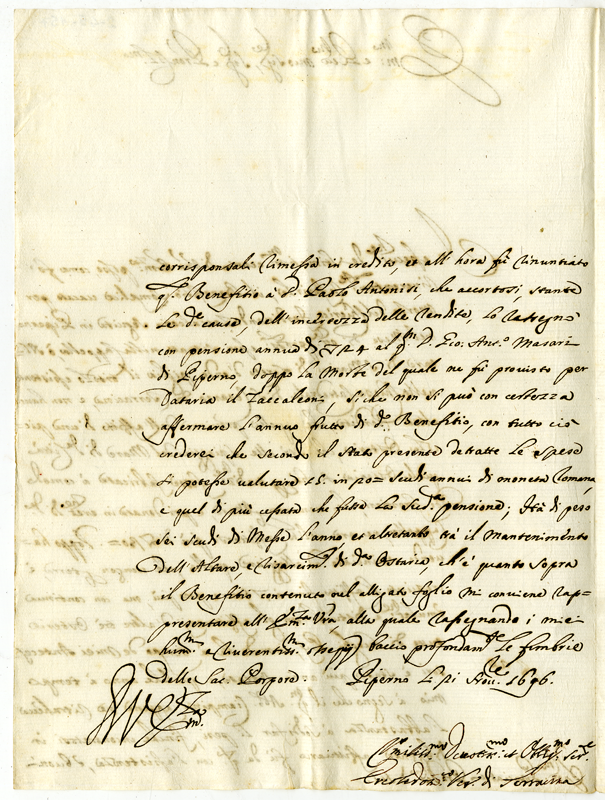 corrisponsali rimessa in credito, et all'hora fù rinuntiato
q.o Benefitio à D. Paolo Antonini, che accortosi, stante
le d.e cause, dell'incertezza delle rendite, lo rassegnò
con pensione annua di 24 al q.m D. Gio: Ant.o Masari
di Piperno, doppo la Morte del quale ne fù provisto per
Dataria il Zaccaleoni, si che non si può con certezza
affermare l'annuo frutto di d.o Benefitio, con tutto ciò
crederei che secondo il stato presente detratte le spese
si potesse valutare 15. in 20= scudi annui di moneta romana
e quel di più cessata che fusse la sud.a pensione; Hà di peso
sei scudi di Messe l'anno, et altretanto trà il mantenimento
dell'Altare, e risarcim.ti di d.a Ostaria, ch'è quanto sopra
il Benefitio contenuto nel alligato foglio mi conviene rap=
presentare all' Em.za Vra, alla quale rassegnando i miei
hum.mi e riverentiss.mi ossequij baccio profondam.te le fimbrie
delle Sac. Porpore. Piperno li 21 Nov.re 1696.
Em.za
Humiliss.mo Devotis.mo et Oblig.mo Ser.e
Ves. di Terracina